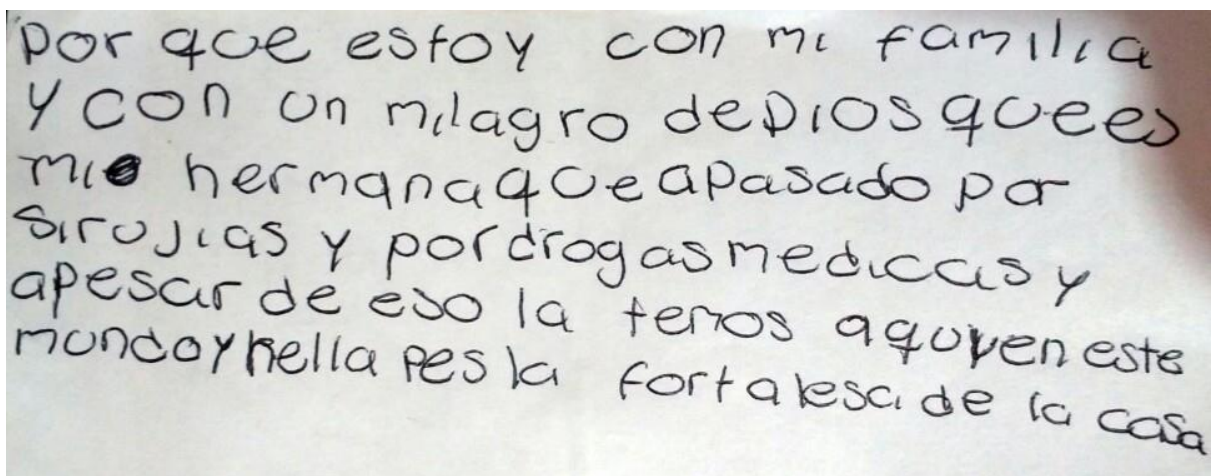 por que estoy con mi familia
y con un milagro de Dios que es
mi hermana que apasado por
sirujias y por drogas medicas y
apesar de eso la temos aquy en este
mundo y hella es la fortalesa de la casa